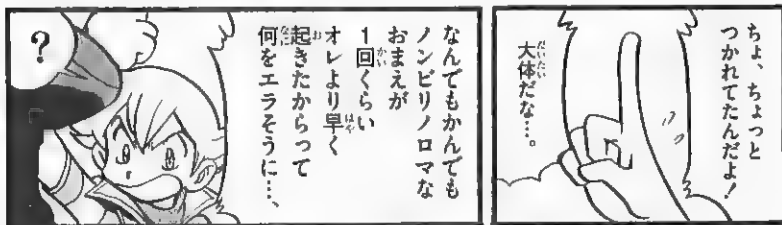 ちょ、ちょっと
つかれてたんだよ!
大体だな…。
なんでもかんでも
ノンビリノロマな
おまえが
1回くらい
オレより早く
起きたからって
何をエラそうに…、
?